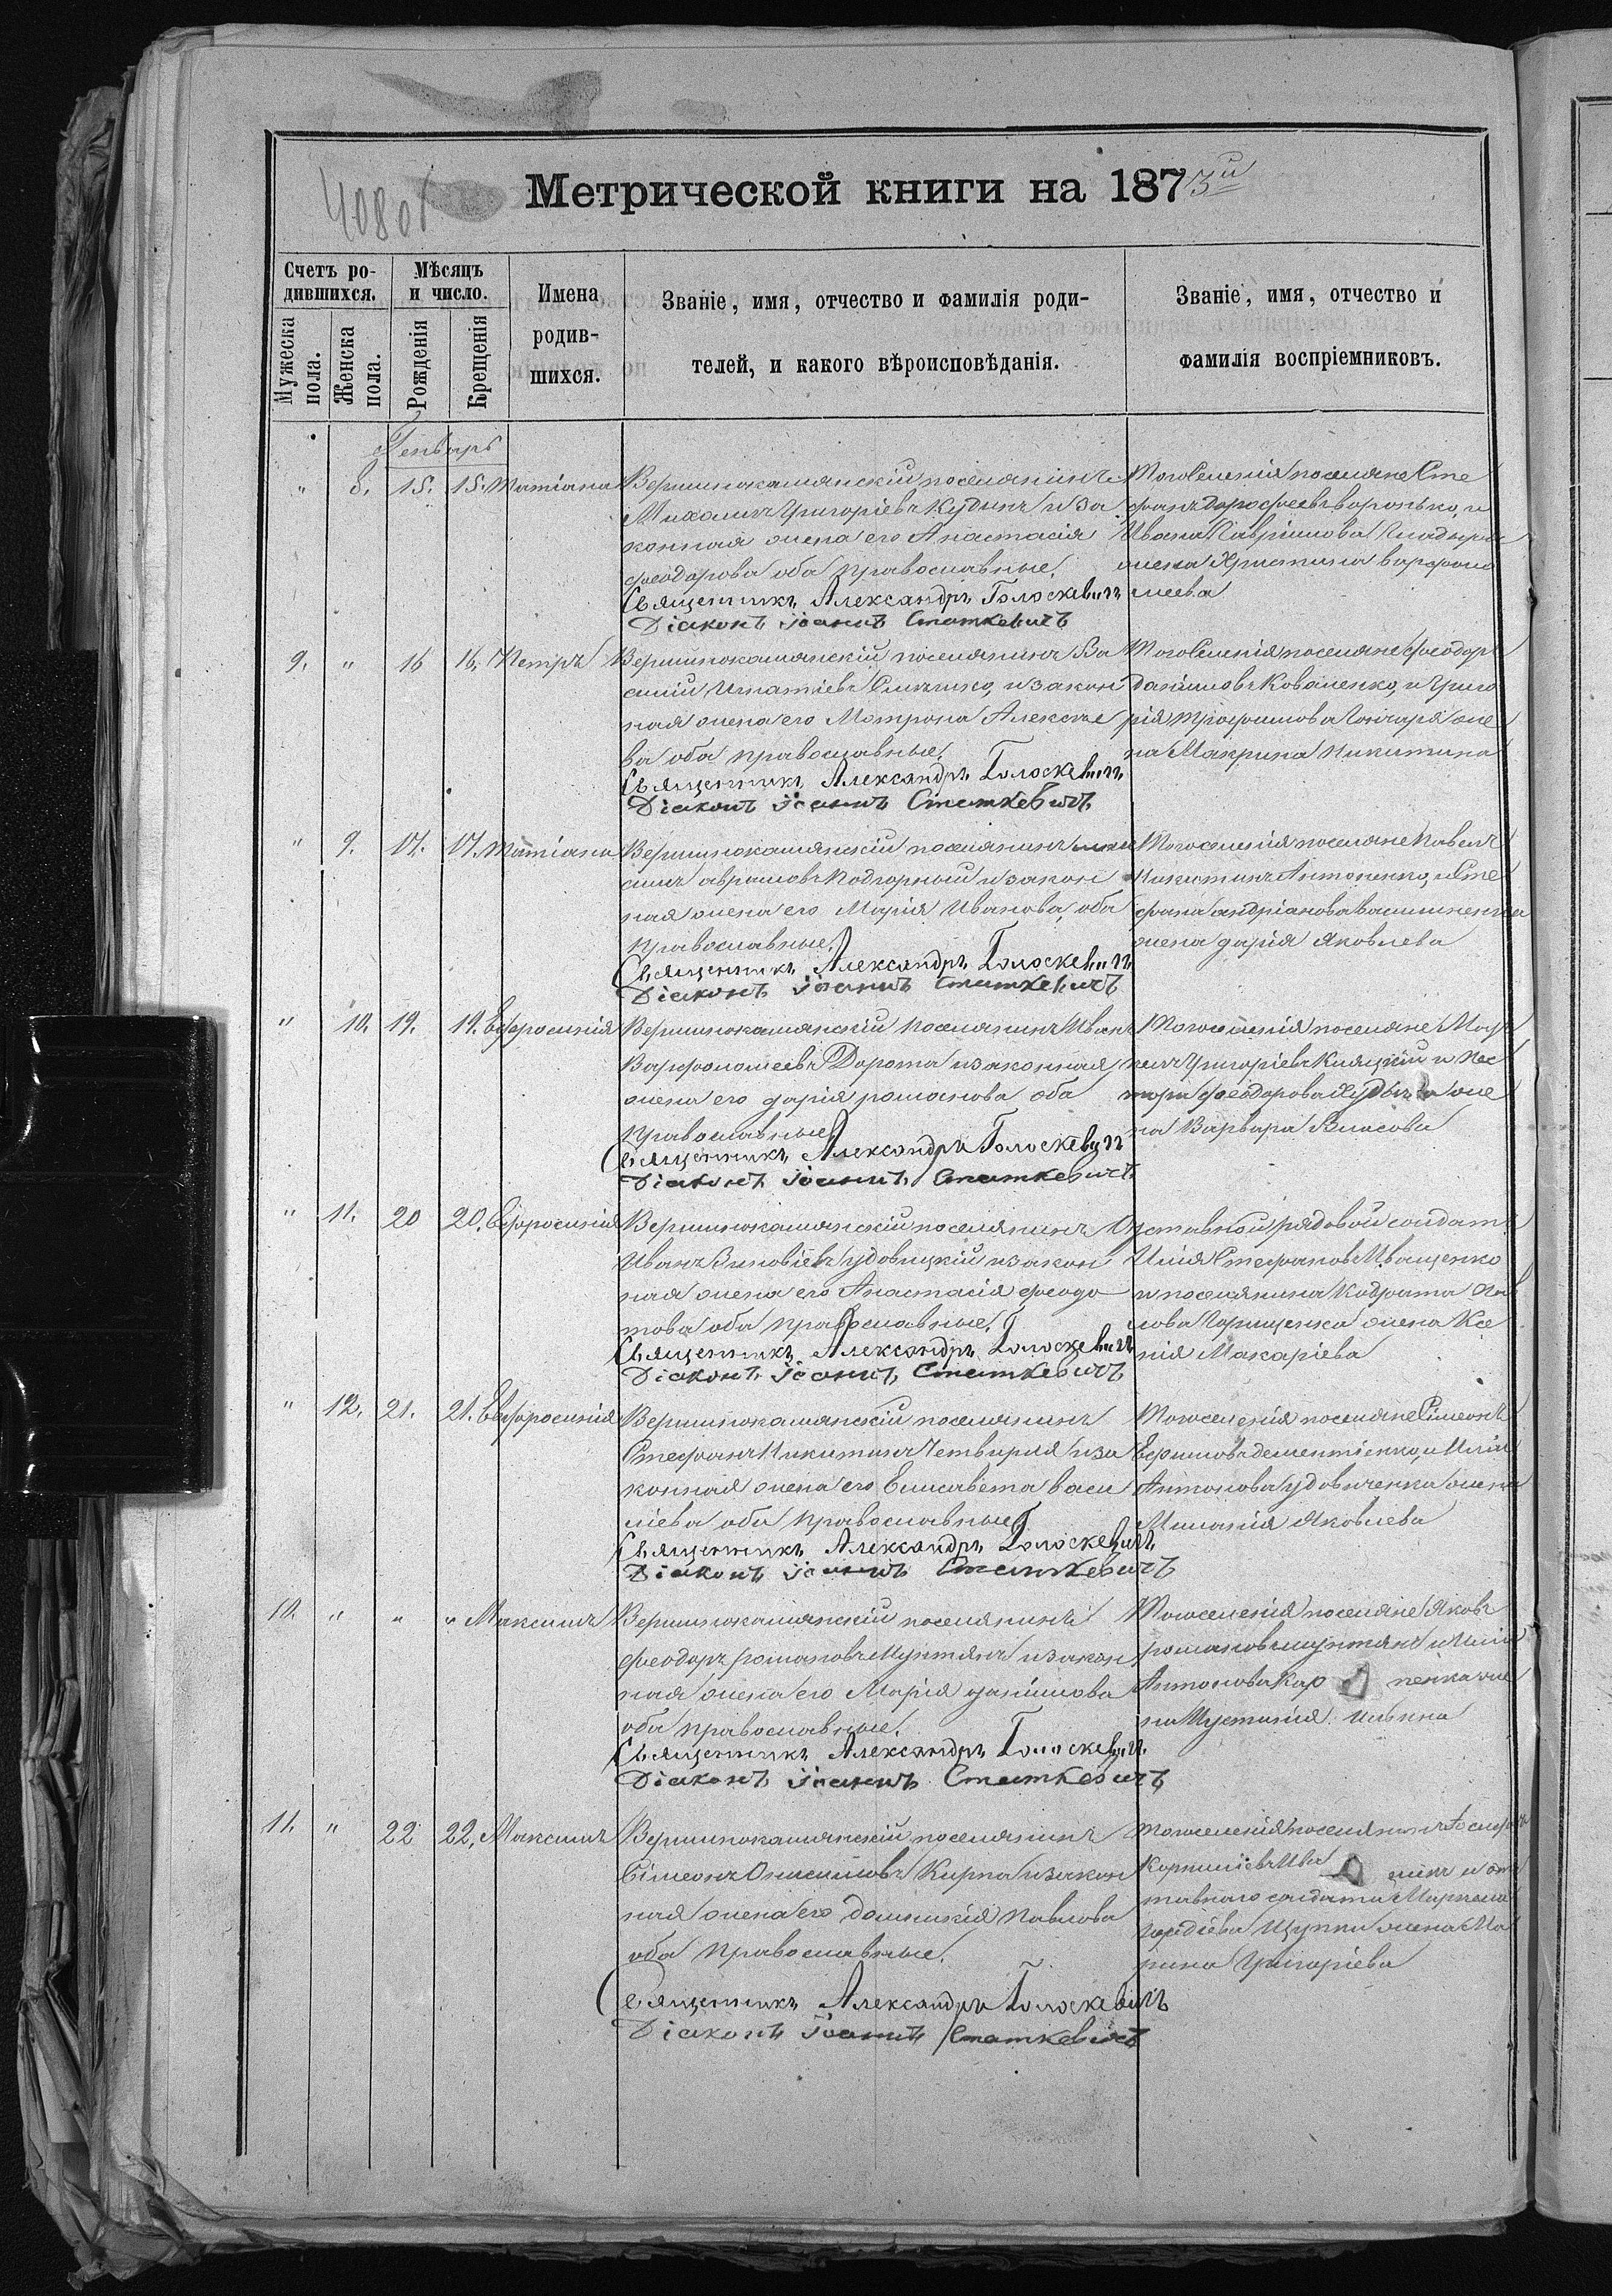 4080
Метрической книги на 1873й
Счетъ родившихся.
Мѣсяцъ и число.
Мужеска пола.
Женска пола.
Рожденія
Крещенія
Имена родившихся.
Званіе, имя, отчество и фамилія родителей, и какого вѣроисповѣданія.
Званіе, имя, отчество и фамилія воспріемниковъ.
Генварь
" 8. 15. 15. Татіана
Вершинокамянскій поселянинъ
Михаилъ Григоріевъ Кудинъ и за
конная жена его Анастасія
феодорова оба православные.
Священникъ Александръ Голоскевичъ
Діаконъ Іоаннъ Статкевичъ
Тогоселенія поселяне Сте
фанъ Дорофеевъ воронько, и
Ивана Гаврилова
жена Христина варфоло
меева
9. " 16 16. Петръ
Вершинокамянскій поселянинъ Ва
силій Игнатіевъ и закон
ная жена его Матрона Алексѣе
ва оба православные.
Священникъ Александръ Голоскевичъ
Діаконъ Іоаннъ Статкевичъ
Тогоселенія поселяне феодоръ
Даниловъ Коваленко, и Григо
рія трофимова Гончаря же
на Макрина Никитина
" 9. 17. 17. Татіана
Вершинокамянскій поселянинъ
аврамовъ Подгорный и закон
ная жена его Марія Иванова, оба
православные.
Священникъ Александръ Голоскевичъ
Діаконъ Іоаннъ Статкевичъ
Тогоселенія поселяне Павелъ
Никитинъ Антоненко, и Сте
фана андріанова василиненка
жена дарія Яковлева
" 10. 19. 19. Евфросинія
Вершинокамянскій поселянинъ Иванъ
Варфоломеевъ Дорома и законная
жена его дарія романова оба
православные.
Священникъ Александръ Голоскевичъ
Діаконъ Іоаннъ Статкевичъ
Тогоселенія поселяне
Григоріевъ и Нес
тора феодорова Кудина же
на Варвара Власова
" 11. 20 20. Евфросинія
Вершинокамянскій поселянинъ
Иванъ Зиновіевъ Удовицкій и закон
ная жена его Анастасія феодо
това оба православные.
Священникъ Александръ Голоскевичъ
Діаконъ Іоаннъ Статкевичъ
Отставной рядовой солдатъ
Илія Стефановъ Иващенко
и поселянина Кодрата Пав
лова жена Ксе
нія Макаріева
" 12. 21. 21. Евфросинія
Вершинокамянскій поселянинъ
Стефанъ Никитинъ Четвирня и за
конная жена его Елисавета васи
ліева оба православные.
Священникъ Александръ Голоскевичъ
Діаконъ Іоаннъ Статкевичъ
Тогоселенія поселяне Симеонъ
Ефимовъ дементіенко, и Иліи
Антонова удовиченка жена
Миланія Яковлева
10. " " " Максимъ
Вершинокамянскій поселянинъ
феодоръ романовъ Мунтянъ и закон
ная жена его Марія данилова
оба православные.
Священникъ Александръ Голоскевичъ
Діаконъ Іоаннъ Статкевичъ
Тогоселенія поселяне Яковъ
романовъ мунтянъ и Иліи
Антонова Кар пенка же
на Иустинія Ильина
11. " 22 22. Максимъ
Вершинокамянскій поселянинъ
Симеонъ Онисимовъ Кирпа и закон
ная жена его домникія Павлова
оба православные.
Священникъ Александръ Голоскевичъ
Діаконъ Іоаннъ Статкевичъ
Тогоселенія поселянинъ
Корниліевъ и от
тавнаго солдата
Гордіева жена Ма
рина Григоріева